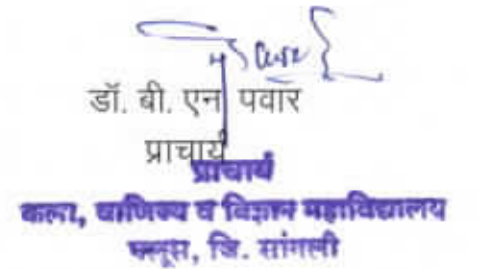 डॉ. बी. एन पवार
प्राचार्य
प्राचार्य
कला, वाणिज्य व विज्ञान महाविद्यालय
पलूस, जि. सांगली